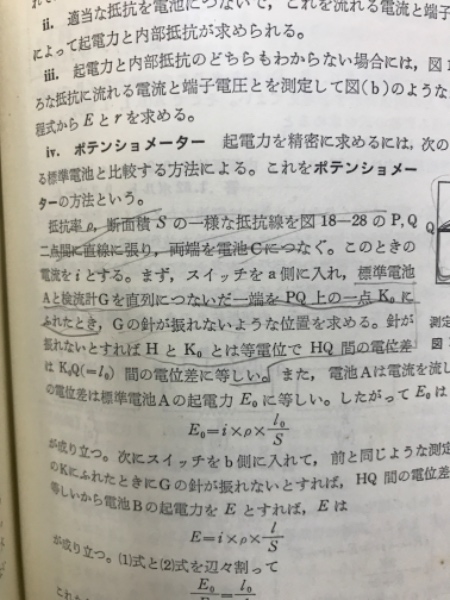 ii. 適当な抵抗を電池につないで,これを流れる電流と端子
によって起電力と内部抵抗が求められる。
iii. 起電力と内部抵抗のどちらもわからない場合には,図1
ろな抵抗に流れる電流と端子電圧とを測定して図(b)のような
程式からEとrを求める。
iv. ポテンショメーター 起電力を精密に求めるには,次の
る標準電池と比較する方法による。これをポテンショメー
ターの方法という。
抵抗率ρ,断面積Sの一様な抵抗線を図18—28のP,Q
二点間に直線に張り,両端を電池Cにつなぐ。このときの
電流をiとする。まず,スイッチをa側に入れ,標準電池
Aと検流計Gを直列につないだ一端をPQ上の一点K₀に
ふれたとき,Gの針が振れないような位置を求める。針が
振れないとすればHとK₀とは等電位でHQ間の電位差
はK₀Q(=l₀)間の電位差に等しい。また,電池Aは電流を流し
の電位差は標準電池Aの起電力E₀に等しい。したがってE₀は
E₀=i×ρ×l₀/S
が成り立つ。次にスイッチをb側に入れて,前と同じような測定
のKにふれたときにGの針が振れないとすれば,HQ間の電位差
等しいから電池Bの起電力をEとすれば,Eは
E=i×ρ×l/S
が成り立つ。(1)式と(2)式を辺々割って
E₀ l₀
Q
測定
図